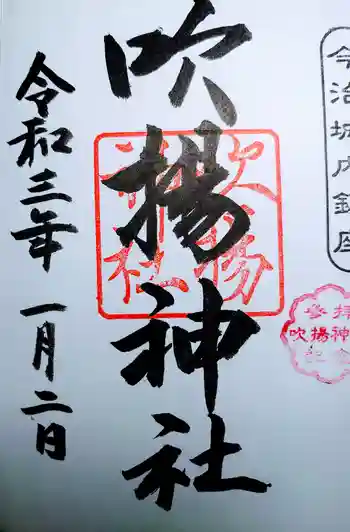 今治城内鎮座
吹揚神社
吹揚
神社
参拝
吹揚神
記念
令和三年 一月二日